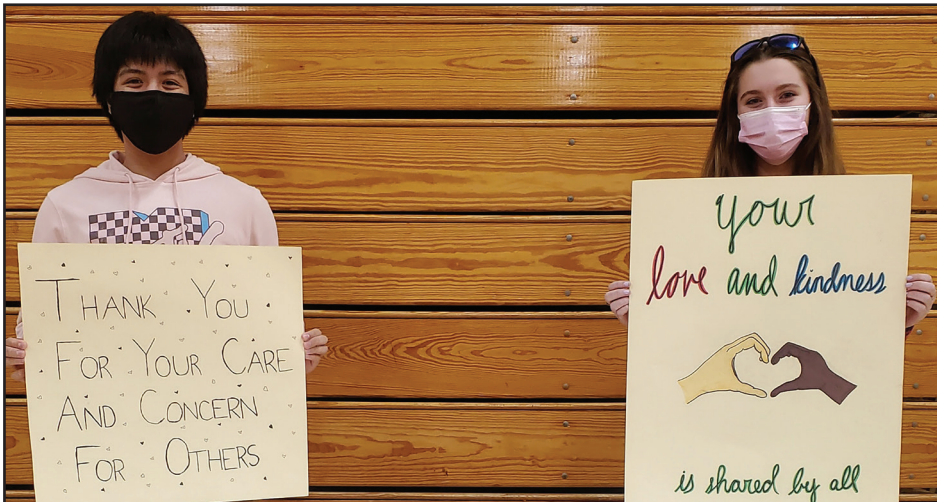 THANK YOU
FOR YOUR CARE
AND CONCERN
FOR OTHERS
your
love and kindness
is shared by all